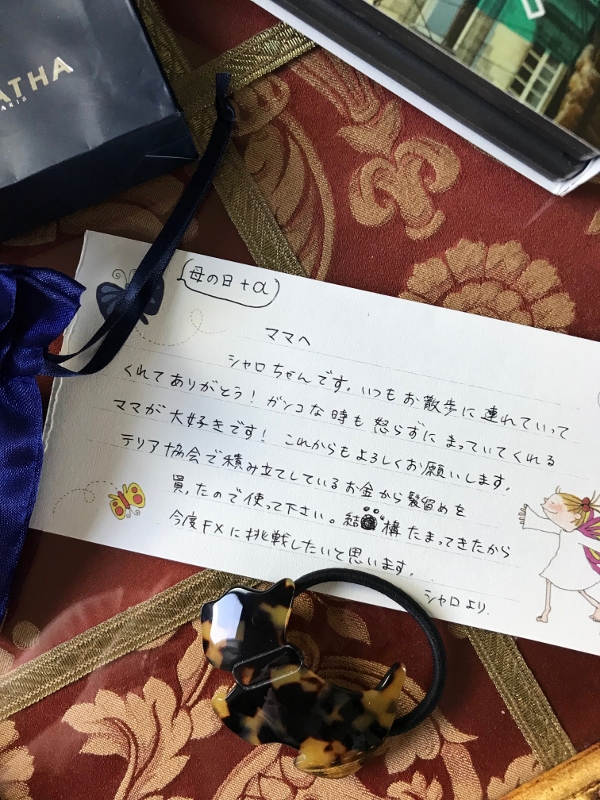 ATHA
PARIS
母の日+α
ママへ
シャロちゃんです。いつもお散歩に連れていって
くれてありがとう！ガンコな時も怒らずにまっていてくれる
ママが大好きです！これからもよろしくお願いします。
テリア協会で積み立てしているお金から髪留めを
買ったので使って下さい。結構たまってきたから
今度FXに挑戦したいと思います。
シャロより.